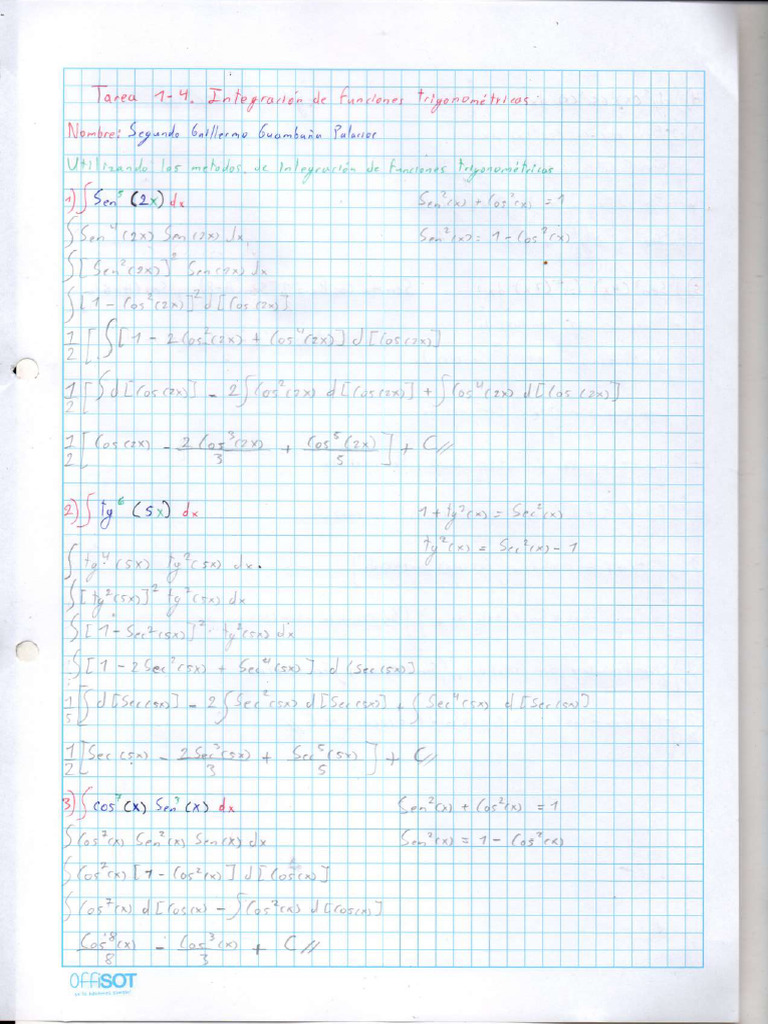 Tarea 1-4. Integración de funciones trigonométricas.
Nombre: Segundo Guillermo Guambaña Palacios
Utilizando los metodos de integración de funciones trigonométricas
1) ∫ Sen⁵ (2x) dx
Sen²(x) + Cos²(x) = 1
∫ Sen⁴(2x) Sen(2x) dx
Sen²(x) = 1 - Cos²(x)
∫ [Sen²(2x)]² Sen(2x) dx
∫ [1 - Cos²(2x)]² d[Cos(2x)]
1/2 [ ∫ [1 - 2Cos²(2x) + Cos⁴(2x)] d[Cos(2x)]
1/2 [ ∫ d[Cos(2x)] - 2∫ Cos²(2x) d[Cos(2x)] + ∫ Cos⁴(2x) d[Cos(2x)]
1/2 [ Cos(2x) - 2Cos³(2x)/3 + Cos⁵(2x)/5 ] + C//
2) ∫ tg⁶ (5x) dx
1 + tg²(x) = Sec²(x)
tg²(x) = Sec²(x) - 1
∫ tg⁴(5x) tg²(5x) dx.
∫ [tg²(5x)]² tg²(5x) dx
∫ [1 - Sec²(5x)]² · tg²(5x) dx
∫ [1 - 2Sec²(5x) + Sec⁴(5x)] d(Sec(5x)]
1/5 [ ∫ d[Sec(5x)] - 2∫ Sec²(5x) d[Sec(5x)] + ∫ Sec⁴(5x) d[Sec(5x)]
1/2 [ Sec(5x) - 2Sec³(5x)/3 + Sec⁵(5x)/5 ] + C//
3) ∫ cos⁷(x) Sen³(x) dx
Sen²(x) + Cos²(x) = 1
∫ Cos⁷(x) Sen²(x) Sen(x) dx
Sen²(x) = 1 - Cos²(x)
∫ Cos⁷(x) [1 - Cos²(x)] d[Cos(x)]
∫ Cos⁷(x) d[Cos(x) - ∫ Cos²(x) d[Cos(x)]
Cos⁸(x)/8 - Cos³(x)/3 + C//
OFFISOT